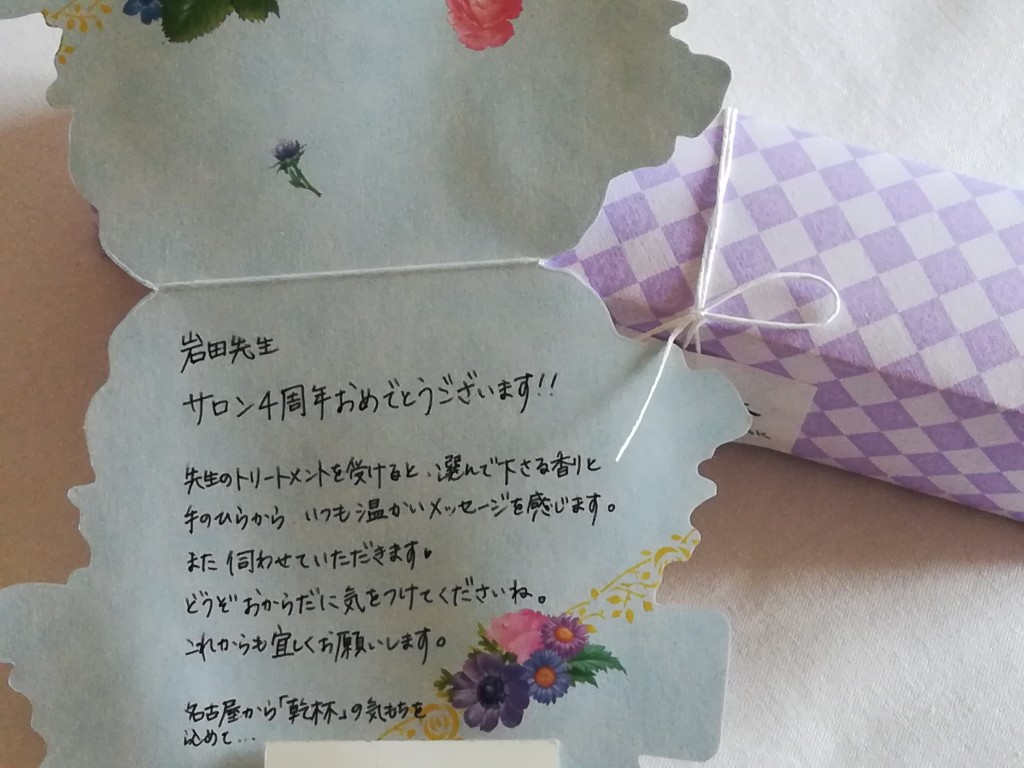 岩田先生
サロン4周年おめでとうございます!!
先生のトリートメントを受けると、選んで下さる香りと
手のひらから いつも温かいメッセージを感じます。
また伺わせていただきます。
どうぞおからだに気をつけてくださいね。
これからも宜しくお願いします。
名古屋から「乾杯」の気もちを
込めて...